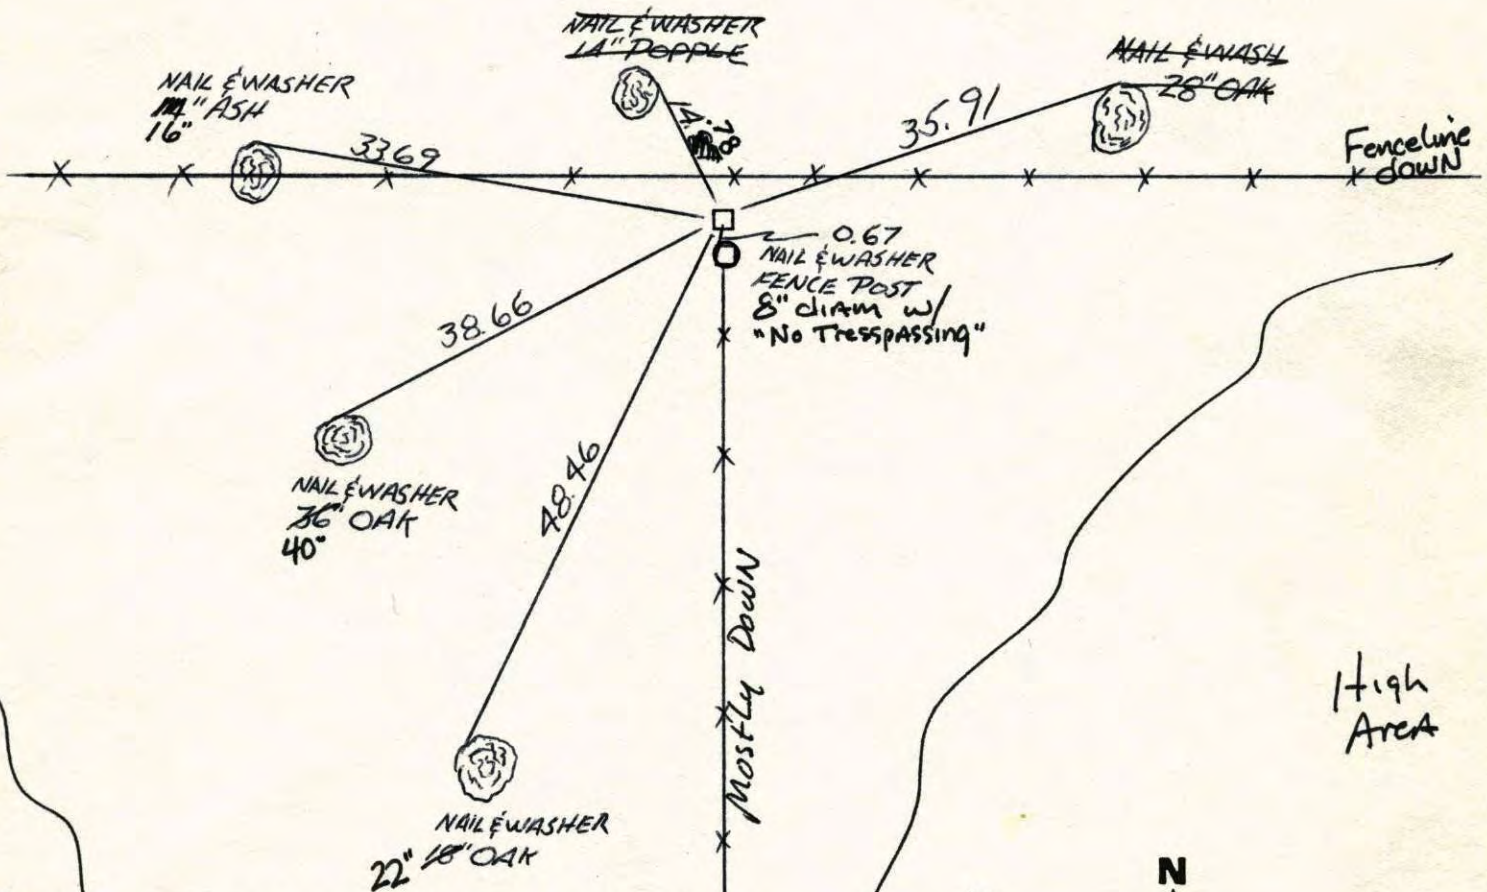 NAIL & WASHER
14" POPPLE
NAIL & WASH
28" OAK
NAIL & WASHER
" ASH
16"
33.69
.78
35.91
Fenceline
down
0.67
NAIL & WASHER
FENCE POST
8" diam w/
"No Tresspassing"
38.66
NAIL & WASHER
36" OAK
40"
48.46
Mostly Down
High
Area
NAIL & WASHER
22" 18" OAK
N